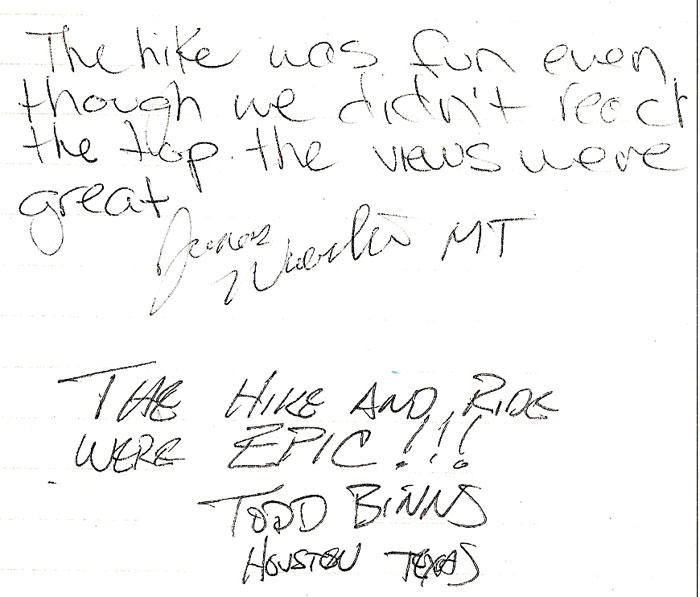 The hike was fun even
though we didn't react
the top. the views were
great
James MT
THE HIKE AND RIDE
WERE EPIC!!!
TODD BINNS
HOUSTON TEXAS